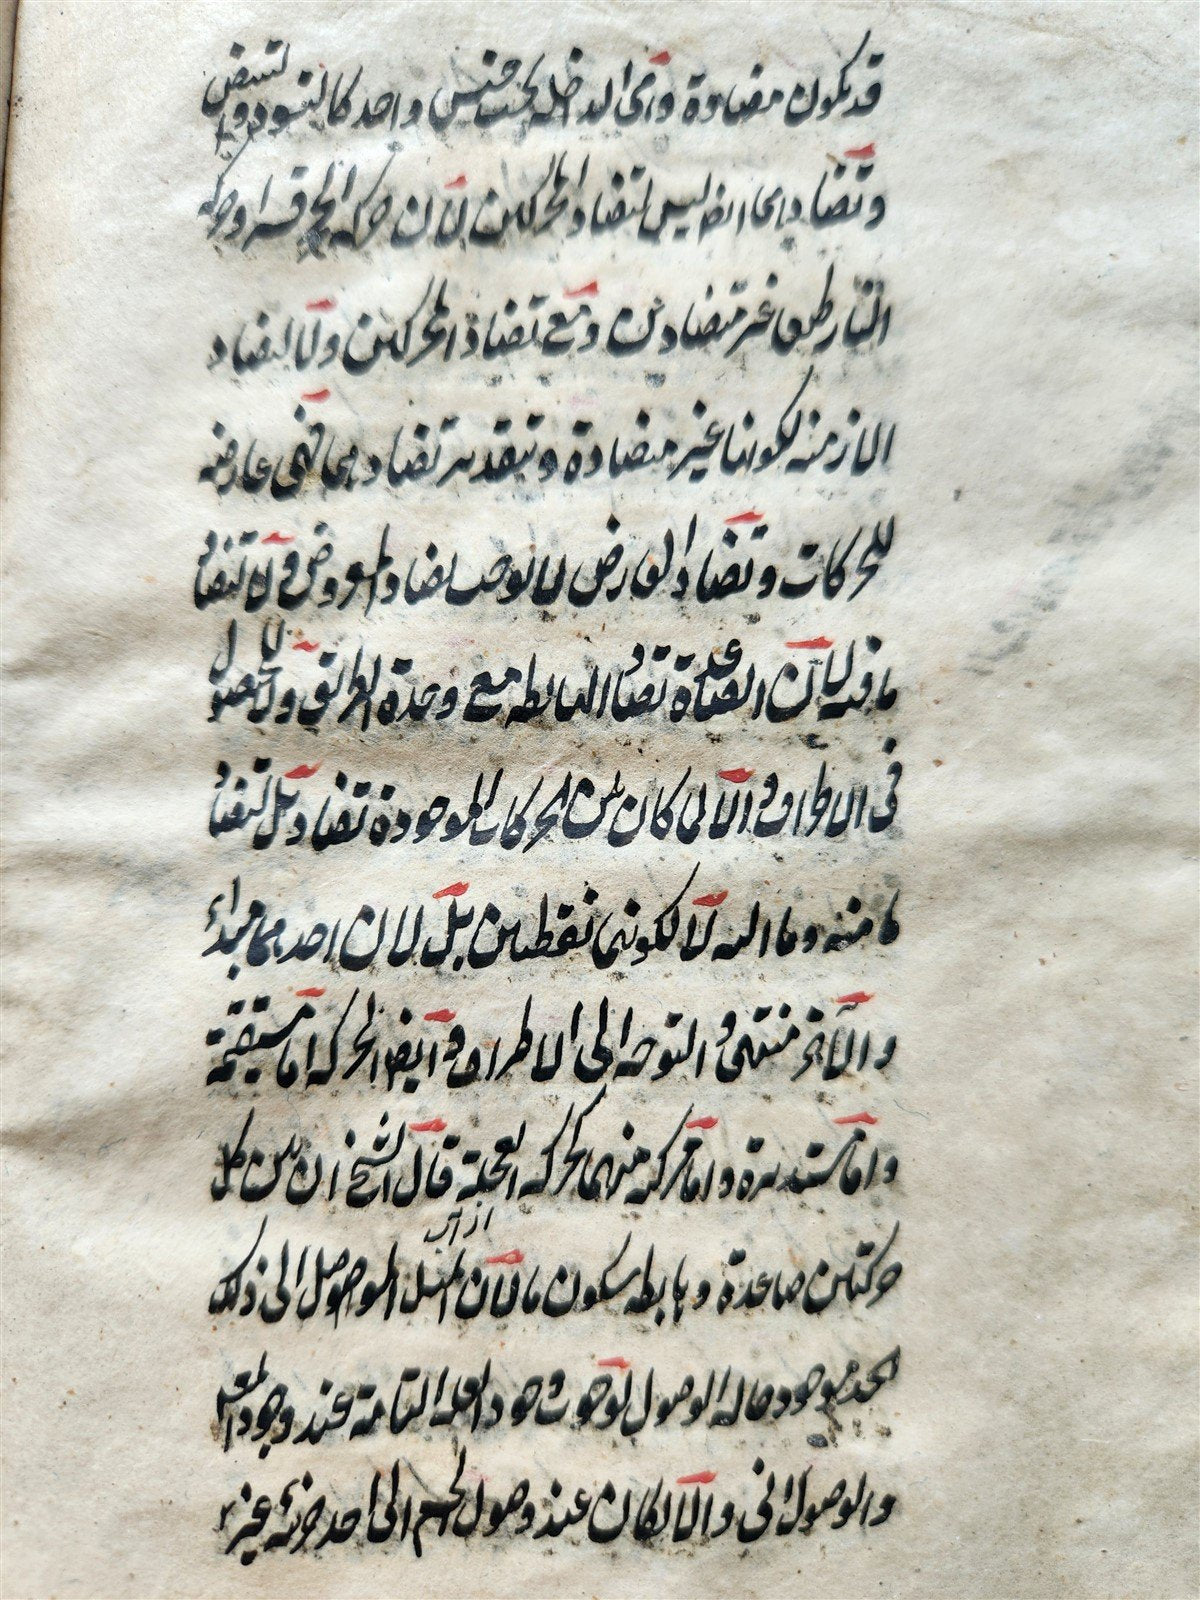 قد تكون متضادة وهى الداخلة تحت جنس واحد كالتسود والتبيض
وتضادهما ايضا ليس لتضاد المحركين لان حركة الحجر قسرا وحركة
النار طبعا غير متضادتين مع تضاد المحركين ولا لتضاد
الازمنة لكونها غير متضادة وبتقدير تضادهما فهى عارضة
للحركات وتضاد العوارض لا يوجب تضاد المعروض ولا لتضاد
ما فيه لان الصاعدة تضاد الهابطة مع وحدة الطريق ولا للحصول
فى الاطراف والا لما كان بين الحركات الموجودة تضاد بل لتضاد
ما منه وما اليه لا لكونهما نقطتين بل لان احدهما مبداء
والآخر منتهى والتوجه الى الاطراف وايضا الحركة اما مستقيمة
واما مستديرة واما مركبة منهما كحركة العجلة قال الشيخ ان بين كل
حركتين صاعدة وهابطة سكون ما لان الميل الموصل الى ذلك
الحد موجود حالة الوصول لوجوب وجود العلة التامة عند وجود المعلول
والوصول انى والا لكان عند وصول الجسم الى احد جزئيه غير